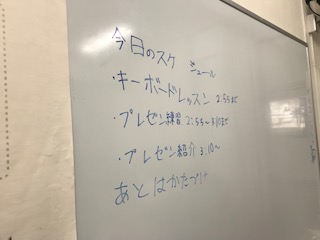 今日のスケジュール
・キーボードレッスン 2:55まで
・プレゼン練習 2:55〜3:10まで
・プレゼン紹介 3:10〜
あとはかたづけ